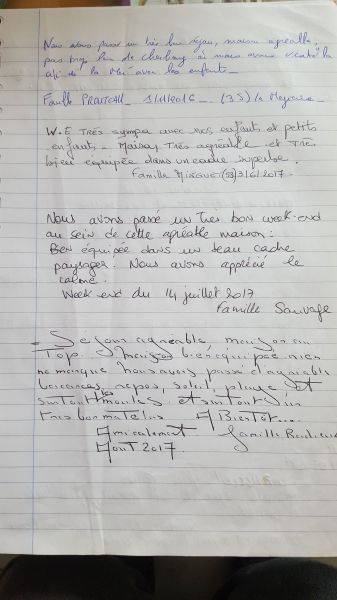 Nous avons passé un très bon séjour, maison agréable,
pas trop loin de cherbourg où nous avons visité la
cité de la Mer avec les enfants.
Famille 1/11/2016 (35)
W.E. Très sympa avec nos enfants et petits
enfants. Maison Très agréable et Très
bien équipée dans un cadre superbe.
Famille (53) 3/6/2017.
Nous avons passé un très bon week-end
au sein de cette agréable maison.
Bien équipée dans un beau cadre
paysager. Nous avons apprécié le
calme.
Week end du 14 juillet 2017
Famille Sauvage
- Sejour agréable, maison au
Top. bien equipée rien
ne manque nous ayons passé d'agréable
vacances, repos, soleil, plage et
surtout les moules et surtout un
tres bon matelas A Bientôt...
Amicalement. famille
Aout 2017.